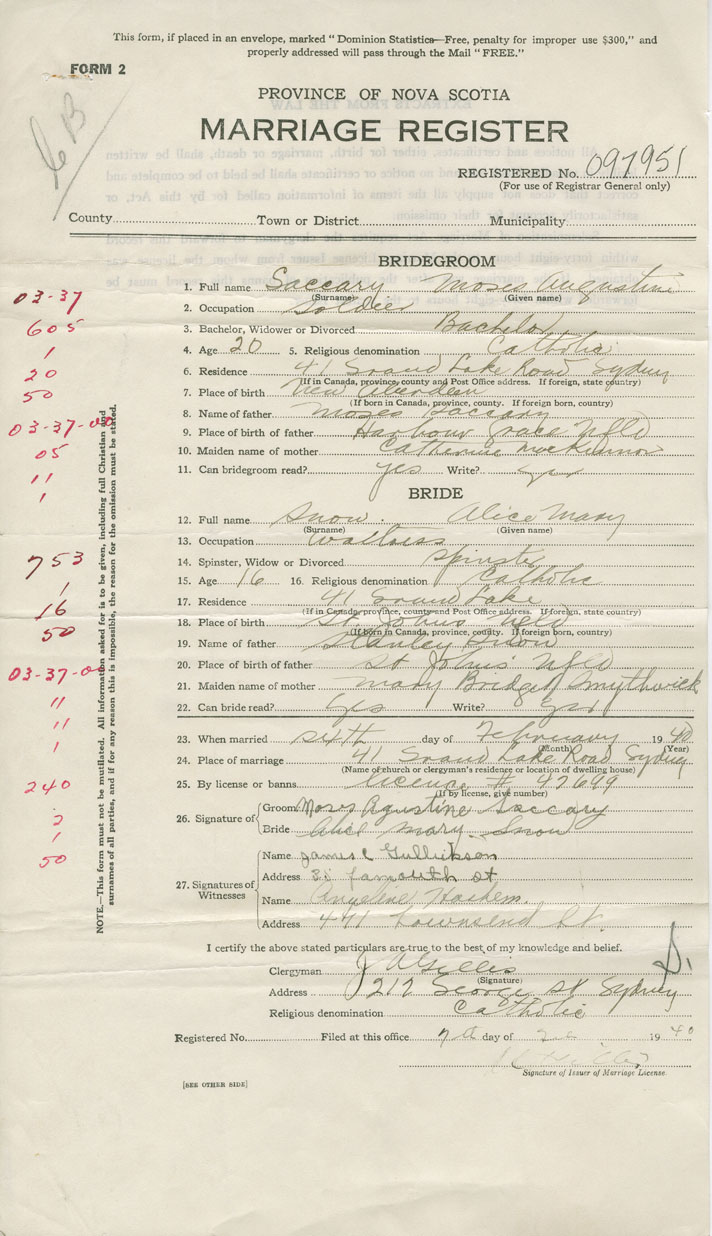 This form, if placed in an envelope, marked "Dominion Statistics—Free, penalty for improper use $300," and
properly addressed will pass through the Mail "FREE."
FORM 2
C B
PROVINCE OF NOVA SCOTIA
MARRIAGE REGISTER
REGISTERED No. 097951
(For use of Registrar General only)
County Town or District Municipality
BRIDEGROOM
03-37
1. Full name Saccary Moses Augustine
(Surname) (Given name)
605
2. Occupation Soldier
3. Bachelor, Widower or Divorced Bachelor
1
4. Age 20 5. Religious denomination Catholic
20
6. Residence 41 Grand Lake Road Sydney
(If in Canada, province, county and Post Office address. If foreign, state country)
50
7. Place of birth New Aberdeen
(If born in Canada, province, county. If foreign born, country)
03-37-00
8. Name of father Moses Saccary
9. Place of birth of father Harbour Grace Nfld
05
10. Maiden name of mother Catherine McKinnon
11
11. Can bridegroom read? yes Write? yes
1
BRIDE
12. Full name Snow. Alice Mary
(Surname) (Given name)
13. Occupation Waitress
753
14. Spinster, Widow or Divorced Spinster
1
15. Age 16 16. Religious denomination Catholic
16
17. Residence 41 Grand Lake
(If in Canada, province, county and Post Office address. If foreign, state country)
50
18. Place of birth St. Johns Nfld
(If born in Canada, province, county. If foreign born, country)
19. Name of father Stanley Snow
03-37-00
20. Place of birth of father St Johns' Nfld
11
21. Maiden name of mother Mary Bridget Smythwick
11
22. Can bride read? Yes Write? Yes
1
23. When married sixth day of February 1940
(Month) (Year)
24. Place of marriage 41 Grand Lake Road Sydney
(Name of church or clergyman's residence or location of dwelling house)
240
25. By license or banns licence # 97699
(If by license, give number)
2
1
50
26. Signature of Groom Moses Agustine Saccary
Bride Alice Mary Snow
27. Signatures of Witnesses
Name James C Gullickson
Address famouth st
Name Angeline Hashem.
Address 471 Townsend St.
NOTE.—This form must not be mutilated. All information asked for is to be given, including full Christian and
surnames of all parties, and if for any reason this is impossible, the reason for the omission must be stated.
I certify the above stated particulars are true to the best of my knowledge and belief.
Clergyman J A Gillis
(Signature)
Address 217 George St Sydney
Religious denomination Catholic
Registered No. Filed at this office 7th day of 1940
Signature of Issuer of Marriage License.
[SEE OTHER SIDE]